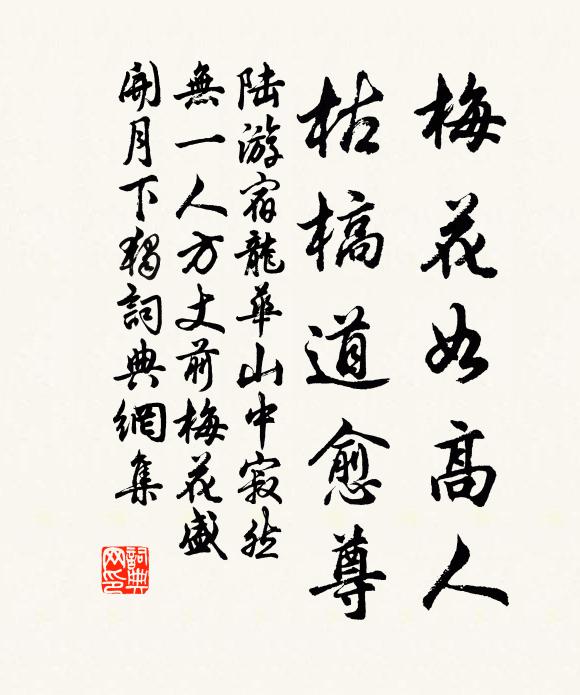 梅花如高人
枯槁道愈尊
陆游宿龍華山中寂然
無一人方丈前梅花盛
開月下獨詞典網集
詞典网印